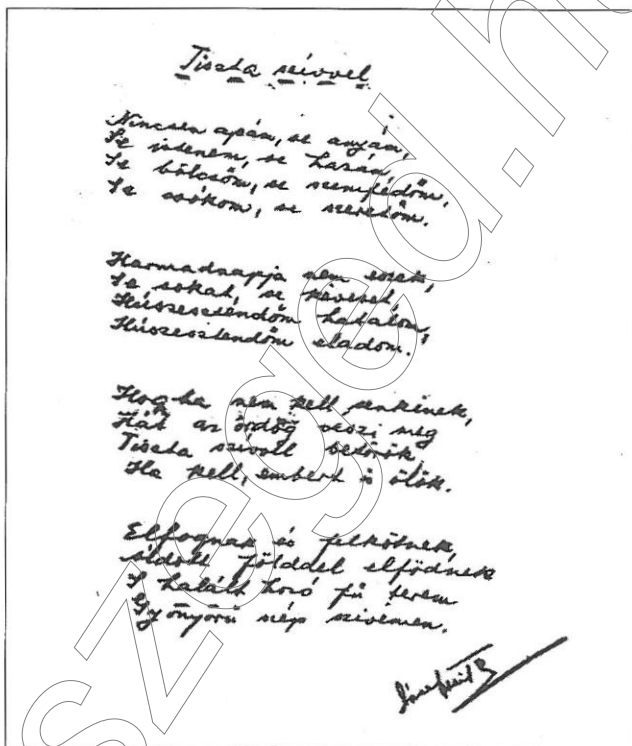 Tiszta szívvel
Nincsen apám, se anyám,
Se istenem, se hazám,
Se bölcsőm, se szemfedőm,
Se csókom, se szeretőm.
Harmadnapja nem eszek,
Se sokat, se keveset,
Húszesztendőm hatalom,
Húszesztendőm eladom.
Hogyha nem kell senkinek,
Hát az ördög veszi meg
Tiszta szivvel betörök
Ha kell, embert is ölök.
Elfognak és felkötnek,
áldott földdel elfödnek
S halált hozó fű terem
Gyönyörű szép szivemen.